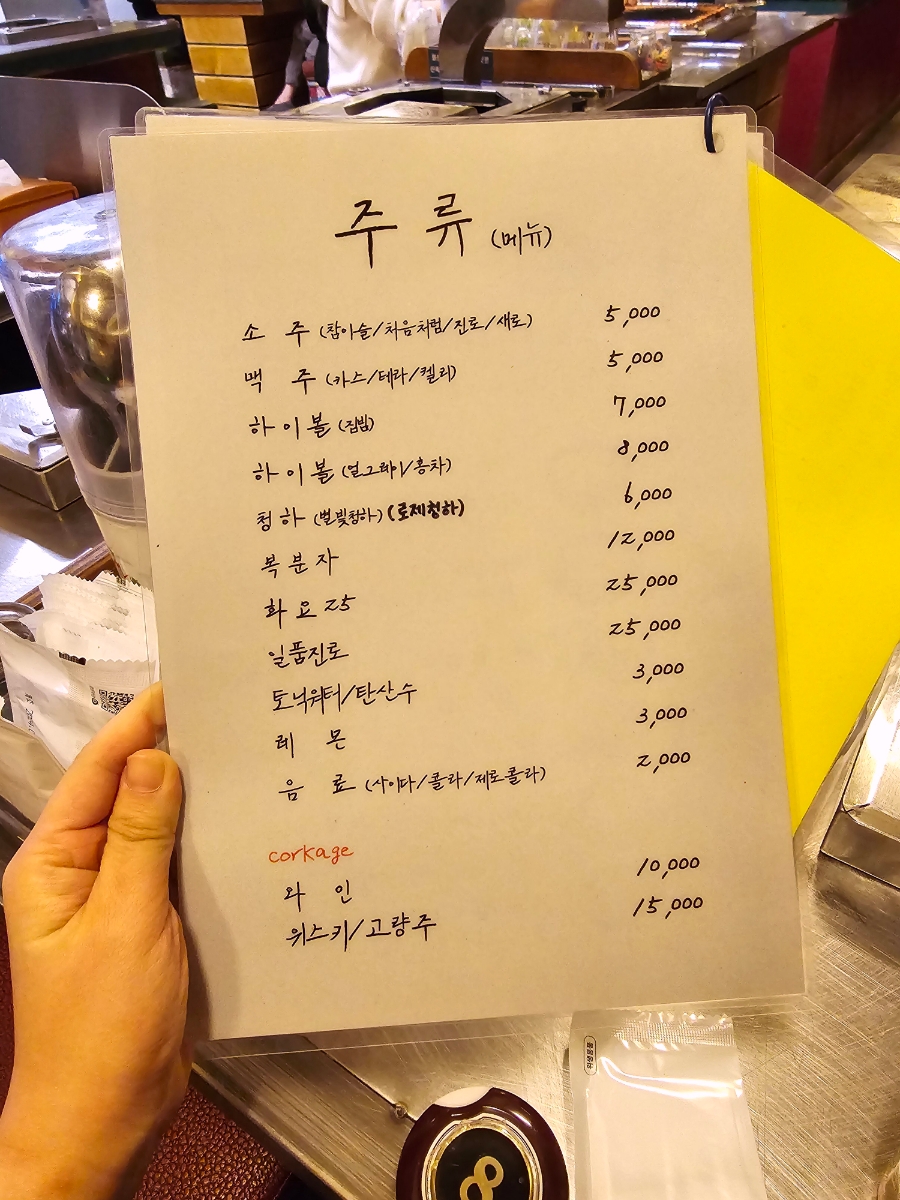 주 류 (메뉴)
소 주 (참이슬/처음처럼/진로/새로) 5,000
맥 주 (카스/테라/켈리) 5,000
하이볼 (짐빔) 7,000
하이볼 (얼그레이/홍차) 8,000
청하 (별빛청하) (로제청하) 6,000
복분자 12,000
화요 25 25,000
일품진로 25,000
토닉워터/탄산수 3,000
레 몬 3,000
음 료 (사이다/콜라/제로콜라) 2,000
corkage
와 인 10,000
위스키/고량주 15,000
8